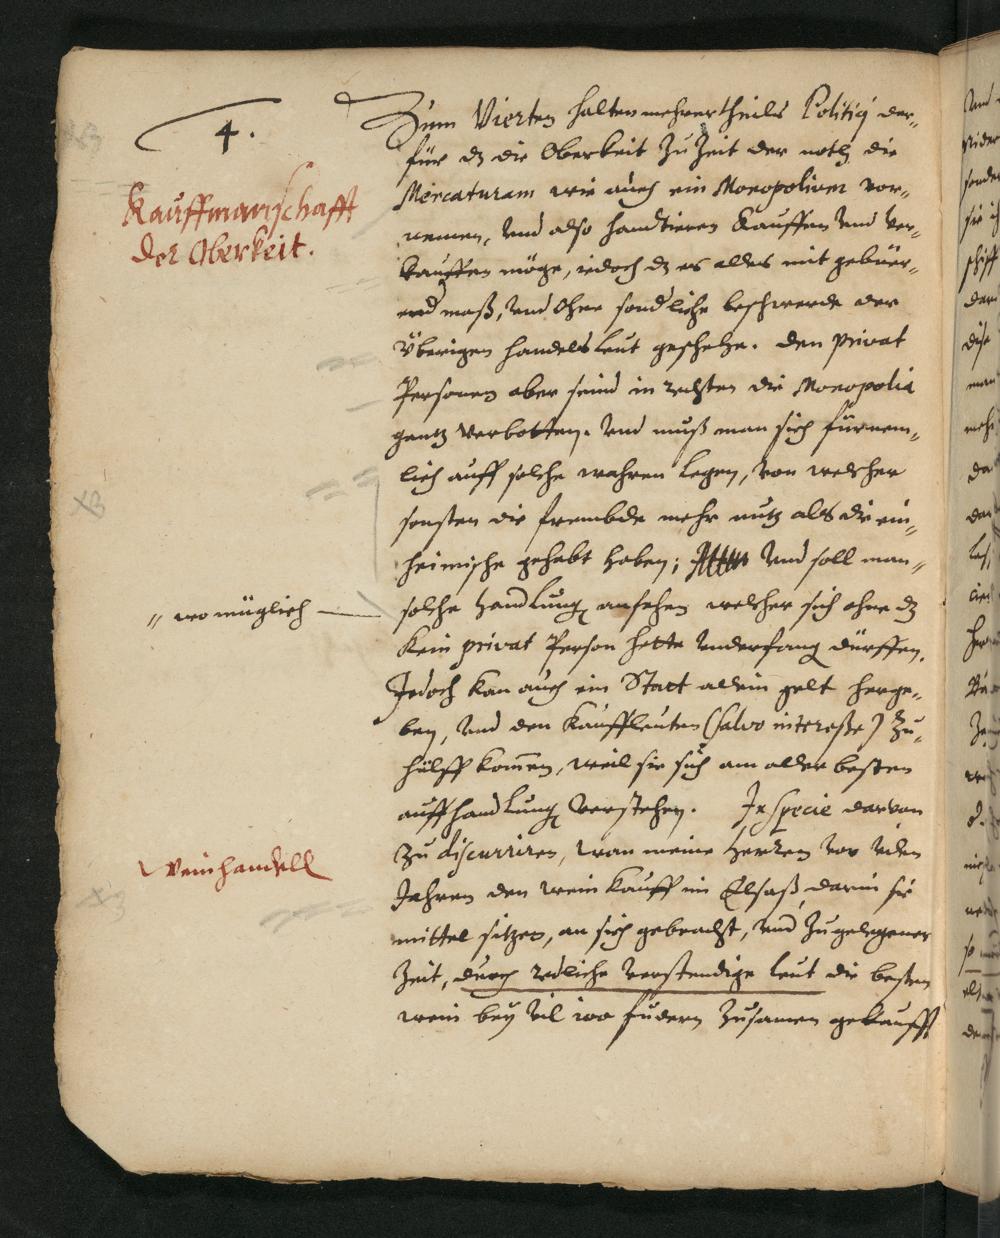 4.
Kauffmanschafft
der Oberkeit.
Zum Vierten halten mehrertheils Politicj der-
für dz die Oberkeit zu Zeit der noth die
Mercaturam wie auch ein Monopolium vor-
nemen, und also handtieren kauffen und ver-
kauffen möge, iedoch dz es alles mit gebüer-
end maß, und ohne sondliche beschwerde der
Überigen handelsleut geschehe. den privat
Personen aber seind in rechten die Monopolia
gantz verbotten. und muß man sich fürnem-
lich auff solche wahren legen, von welcher
sonsten die frembde mehr nutz als die ein-
heimische gehabt haben; und soll man
" wo müglich
solche handlung ansehen welcher sich ohne dz
kein privat Person hette underfang dürffen.
Jedoch kan auch ein Statt allein gelt herge-
ben, und den Kauffleuten (salvo interesse) zu
hülff kommen, weil sie sich am aller besten
auff handlung verstehen. In specie darvon
Weinhandell
zu discurriren, wan meine Herren vor vilen
Jahren den wein kauff im Elsaß, darin sie
mittel sitzen, an sich gebracht, und zu gelegener
Zeit, durch redliche verstendige leut die besten
wein bey vil 100 fudern zusamen gekaufft